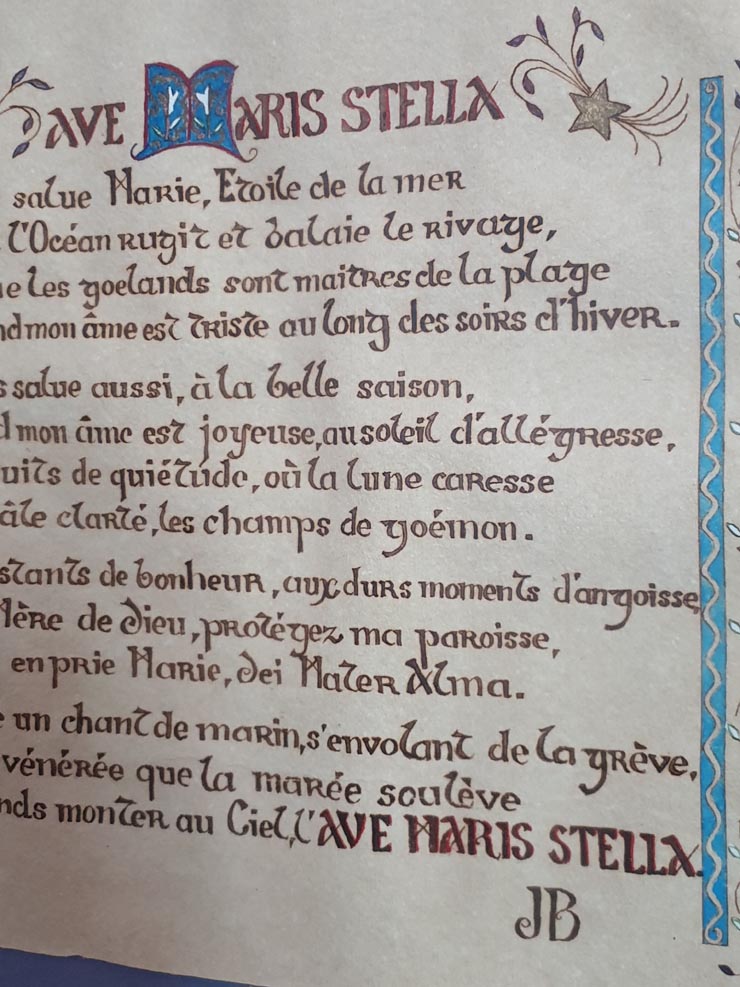 AVE MARIS STELLA
salue Marie, Etoile de la mer
l'Océan rugit et balaie le rivage,
les goelands sont maitres de la plage
mon âme est triste au long des soirs d'hiver.
salue aussi, à la belle saison,
mon âme est joyeuse, au soleil d'allégresse,
de quiétude, où la lune caresse
clarté, les champs de goémon.
de bonheur, aux durs moments d'angoisse,
de Dieu, protégez ma paroisse,
en prie Marie, dei Mater Alma.
un chant de marin, s'envolant de la grève,
vénérée que la marée soulève
monter au Ciel, l'AVE MARIS STELLA.
JB